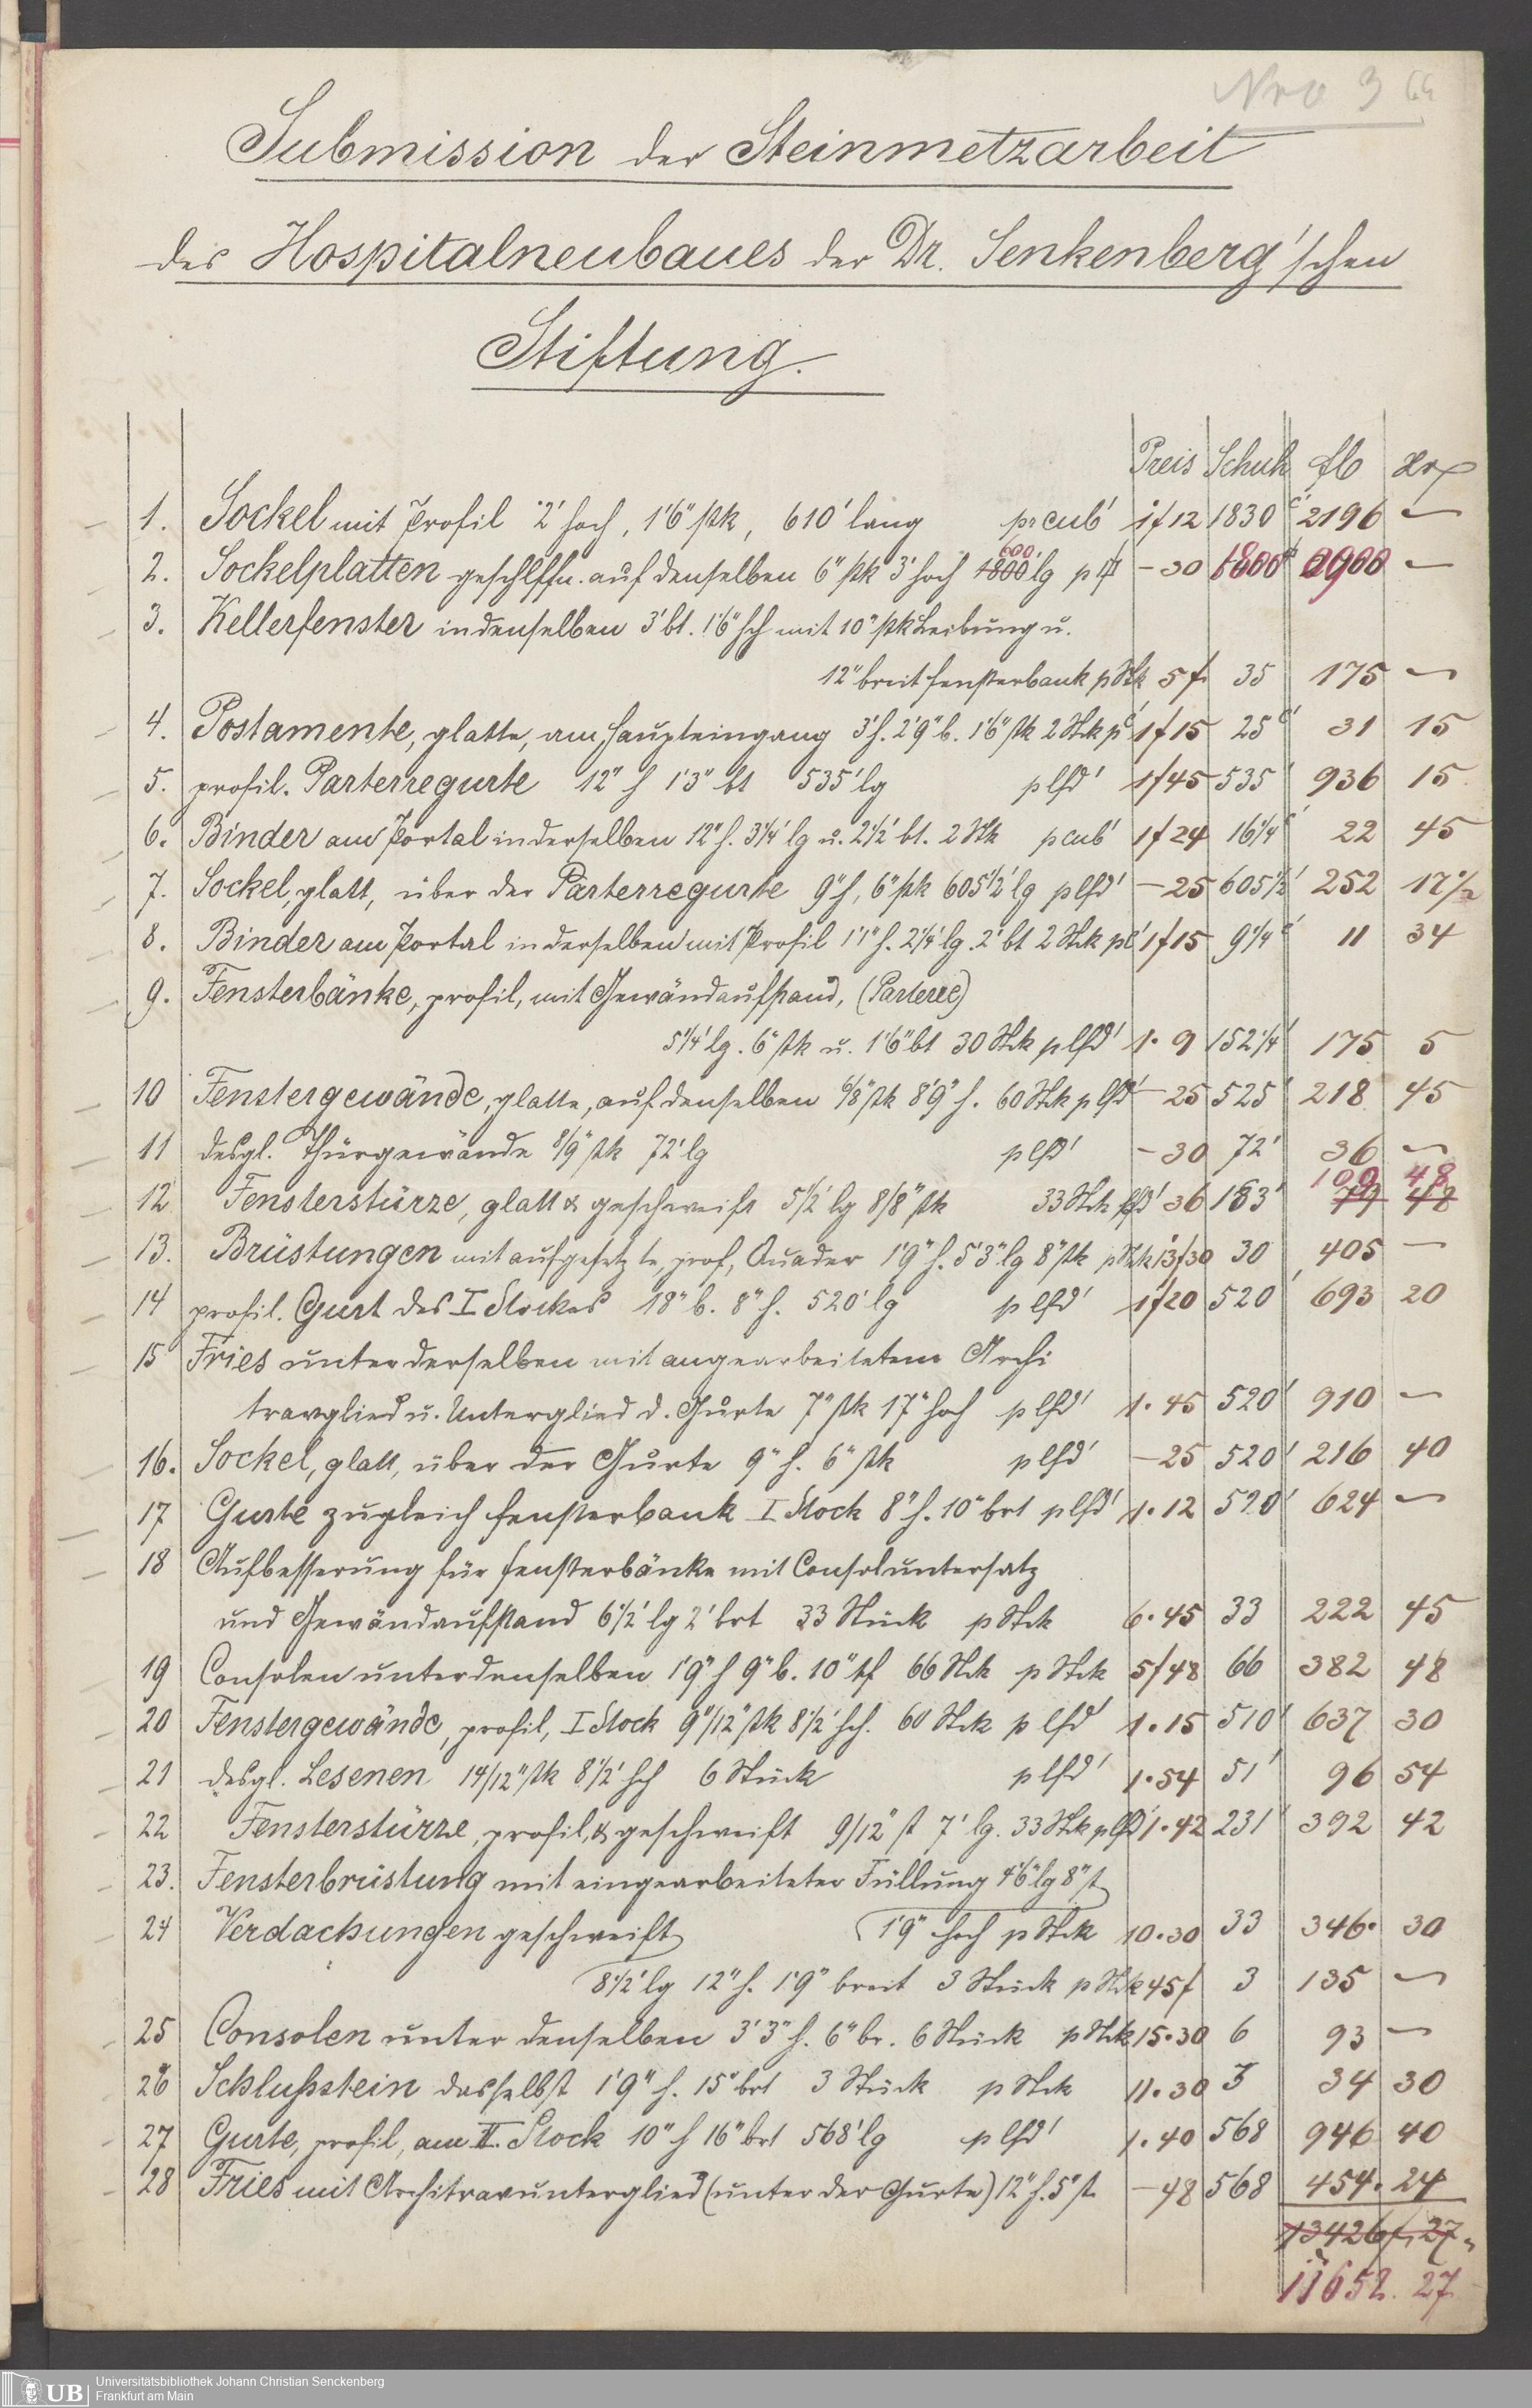 Nro 3 64
Submission der Steinmetzarbeit
des Hospitalneubaues der Dr. Senkenberg'schen
Stiftung.
Preis Schuh fl xr
1. Sockel mit Profil 2' hoch, 1'6" stk, 610' lang pr cub' 1f12 1830 c' 2196 —
2. Sockelplatten geschlffn. auf denselben 6" stk 3' hoch 600' lg p □' —30 1800 900 —
3. Kellerfenster in denselben 3' bt. 1'6" hch mit 10" stk Leibung u.
12" breit Fensterbank p Stk 5f 35 175 —
4. Postamente, glatte, am Haupteingang 3' h. 2'9" b. 1'6" stk 2 Stk p c' 1f15 25 c' 31 15
5. profil. Parterregurte 12" h 1'3" bt 535' lg p lfd' 1f45 535' 936 15
6. Binder am Portal in derselben 12" h. 3 1/4' lg u. 2 1/2' bt. 2 Stk p cub' 1f24 16 1/4 c' 22 45
7. Sockel, glatt, über der Parterregurte 9" h, 6" stk 605 1/2' lg p lfd' —25 605 1/2' 252 17 1/2
8. Binder am Portal in derselben mit Profil 1'1" h. 2 1/4' lg. 2' bt 2 Stck p c' 1f15 9 1/4 c' 11 34
9. Fensterbänke, profil, mit Gewändaufstand, (Parterre)
5 1/4' lg. 6" stk u. 1'6" bt 30 Stk p lfd' 1.9 152 1/4' 175 5
10 Fenstergewände, glatte, auf denselben 6/8" stk 8'9" h. 60 Stk p lfd' —25 525' 218 45
11 desgl. Thürgewände 8/9" stk 72' lg p lfd' —30 72' 36 —
12 Fensterstürze, glatt & geschweift 5 1/2' lg 8/8" stk 33 Stck lfd' 36 183' 109 48
13. Brüstungen mit aufgesetzte, prof, Quader 1'9" h. 5'3" lg 8" stk p Stk 13f30 30 405 —
14 profil. Gurt des I Stockes 18" b. 8" h. 520' lg p lfd' 1f20 520' 693 20
15 Fries unter derselben mit angearbeitetem Archi
travglied u. Unterglied d. Gurte 7" stk 17" hoch p lfd' 1.45 520' 910 —
16. Sockel, glatt, über der Gurte 9" h. 6" stk p lfd' —25 520' 216 40
17 Gurte zugleich Fensterbank I Stock 8" h. 10" brt p lfd' 1.12 520' 624 —
18 Aufbesserung für Fensterbänke mit Consoluntersatz
und Gewändaufstand 6 1/2' lg 2' brt 33 Stück p Stck 6.45 33 222 45
19 Consolen unter denselben 1'9" h 9" b. 10" tf 66 Stck p Stck 5f48 66 382 48
20 Fenstergewände, profil, I Stock 9"/12" stk 8 1/2' hch. 60 Stck p lfd' 1.15 510' 637 30
21 desgl. Lesenen 14/12" stk 8 1/2' hch 6 Stück p lfd' 1.54 51' 96 54
22 Fensterstürze, profil, & geschweift 9/12" st 7' lg. 33 Stk p lfd' 1.42 231' 392 42
23. Fensterbrüstung mit eingearbeiteter Füllung 4'6" lg 8" st
1'9" hoch p Stck 10.30 33 346. 30
24 Verdachungen geschweift
8 1/2' lg 12" h. 1'9" breit 3 Stück p Stck 45f 3 135 —
25 Consolen unter denselben 3'3" h. 6" br. 6 Stück p Stck 15.30 6 93 —
26 Schlußstein daselbst 1'9" h. 15" brt 3 Stück p Stck 11.30 3 34 30
27 Gurte, profil, am II. Stock 10" h 16" brt 568' lg p lfd' 1.40 568 946 40
28 Fries mit Architravunterglied (unter der Gurte) 12" h. 5" st. —48 568 454. 24
13426f, 27"
11652. 27
Universitätsbibliothek Johann Christian Senckenberg
Frankfurt am Main
UB